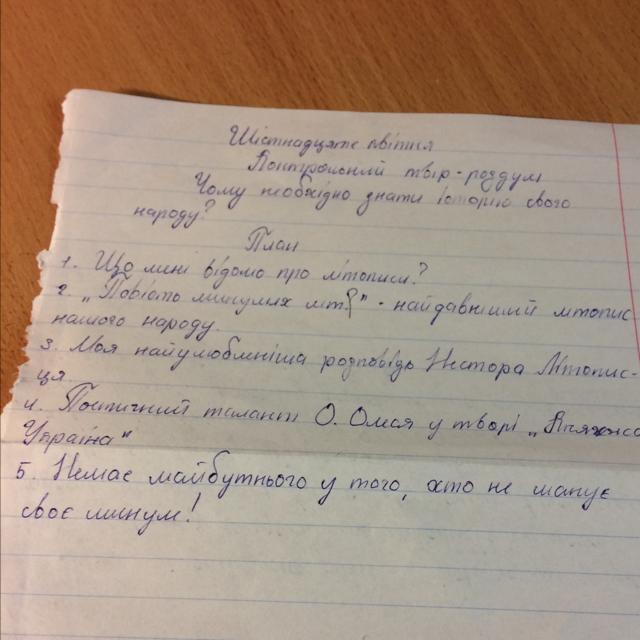 Шістнадцяте квітня
Контрольний твір-роздум
Чому необхідно знати історію свого
народу?
План
1. Що мені відомо про літописи?
2. „Повість минулих літ" - найдавніший літопис
нашого народу.
3. Моя найулюбленіша розповідь Нестора Літопис-
ця
4. Поетичний талант О. Олеся у творі „Княжа
Україна"
5. Немає майбутнього у того, хто не шанує
своє минуле!